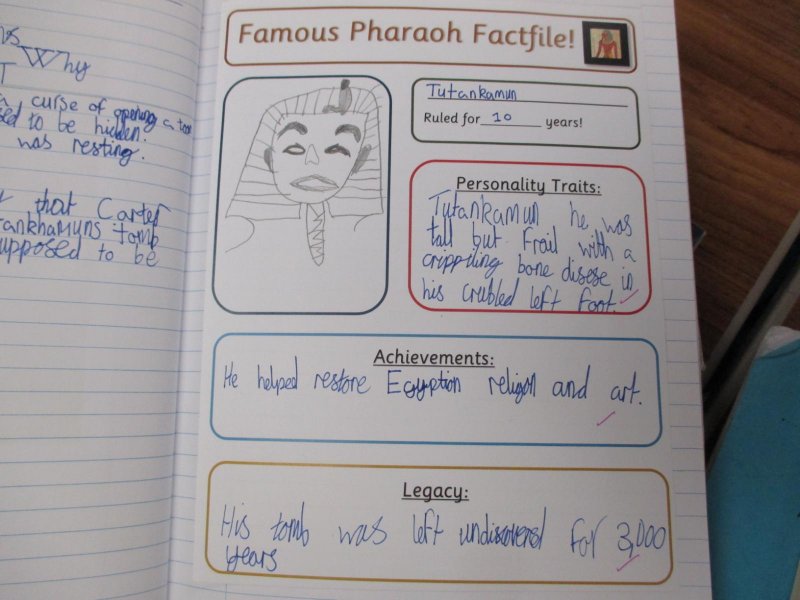 Why
a curse of opening a tom
sed to be hidden.
was resting.
that Carter
tankhamuns tomb
upposed to be
Famous Pharaoh Factfile!
Tutankamun
Ruled for 10 years!
Personality Traits:
Tutankamun he was
tall but frail with a
crippiling bone disese in
his crubled left foot.
Achievements:
He helped restore Egyption religon and art.
Legacy:
His tomb was left undiscoverd for 3,000
years